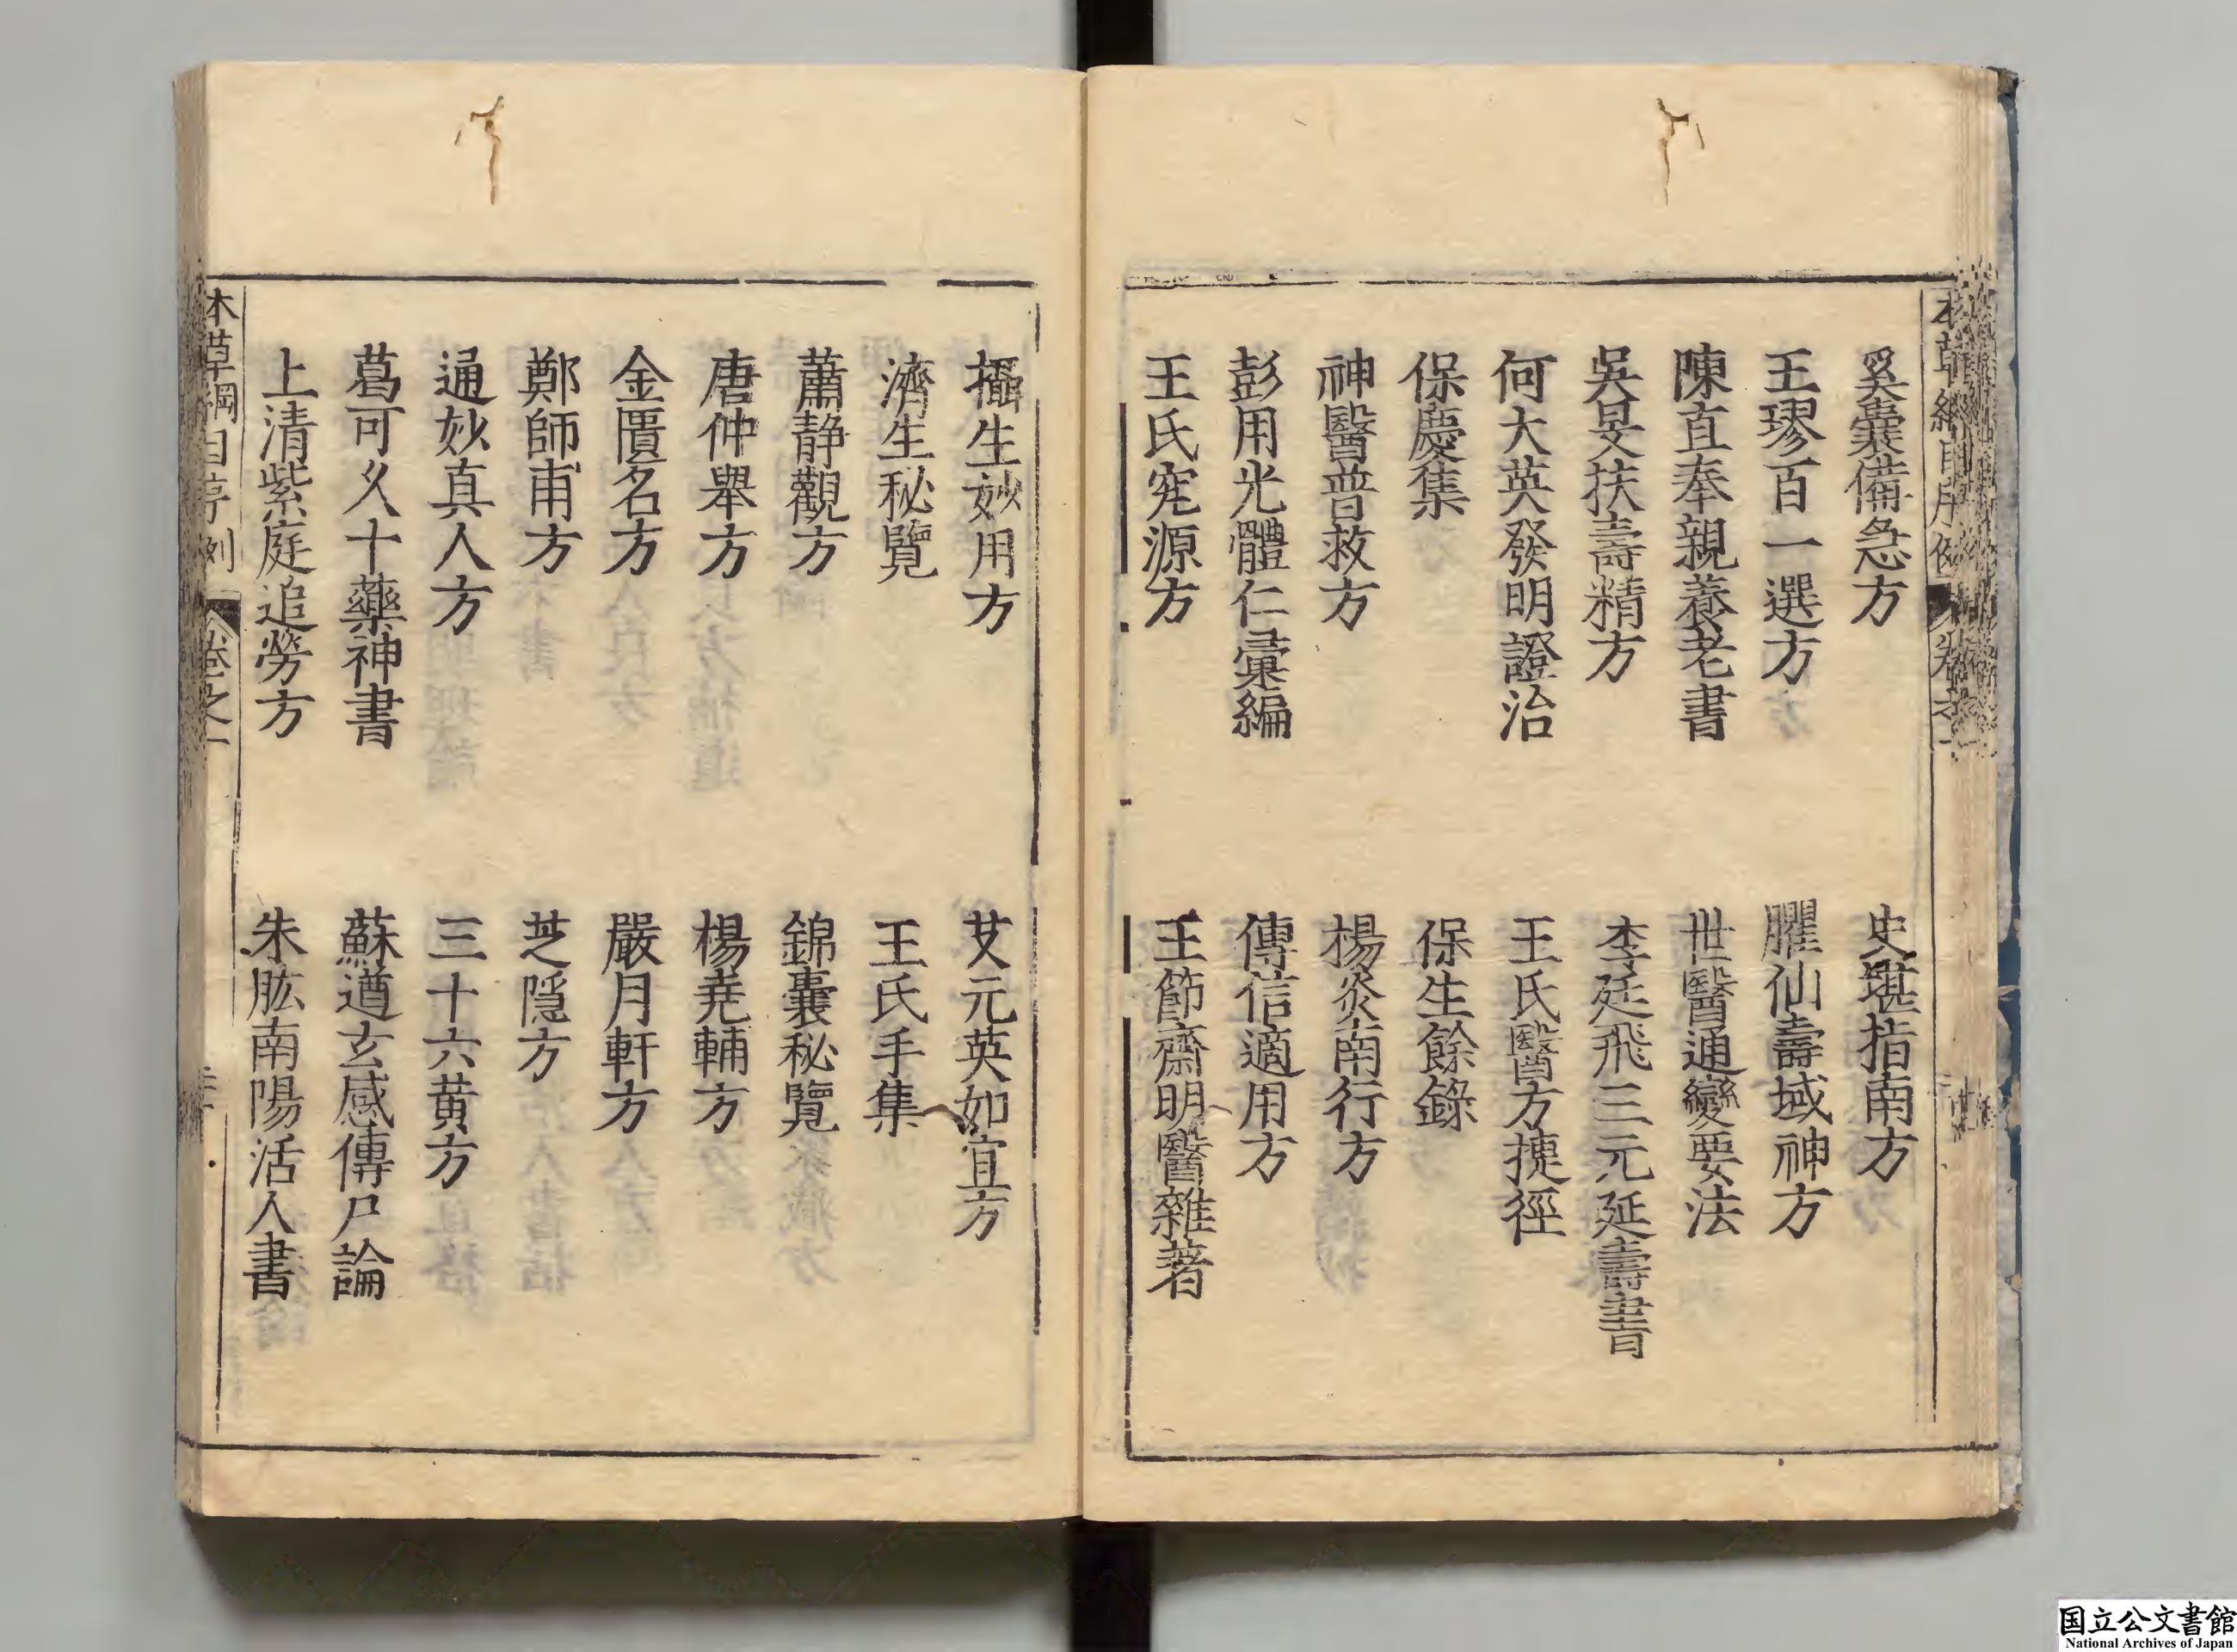 奚囊備急方
史堪指南方
王璆百一選方
臞仙壽域神方
陳直奉親養老書
世醫通變要法
吳旻扶壽精方
李廷飛三元延壽書
何大英發明證治
王氏醫方捷徑
保慶集
保生餘錄
神醫普救方
楊炎南行方
彭用光體仁彙編
傳信適用方
王氏究源方
王節齋明醫雜著
攝生妙用方
艾元英如宜方
濟生秘覽
王氏手集
蕭静觀方
錦囊秘覽
唐仲舉方
楊堯輔方
金匱名方
嚴月軒方
鄭師甫方
芝隱方
通妙真人方
三十六黄方
葛可久十藥神書
蘇遒玄感傳尸論
上清紫庭追勞方
朱肱南陽活人書
本草綱目序例 卷之一
国立公文書館
National Archives of Japan